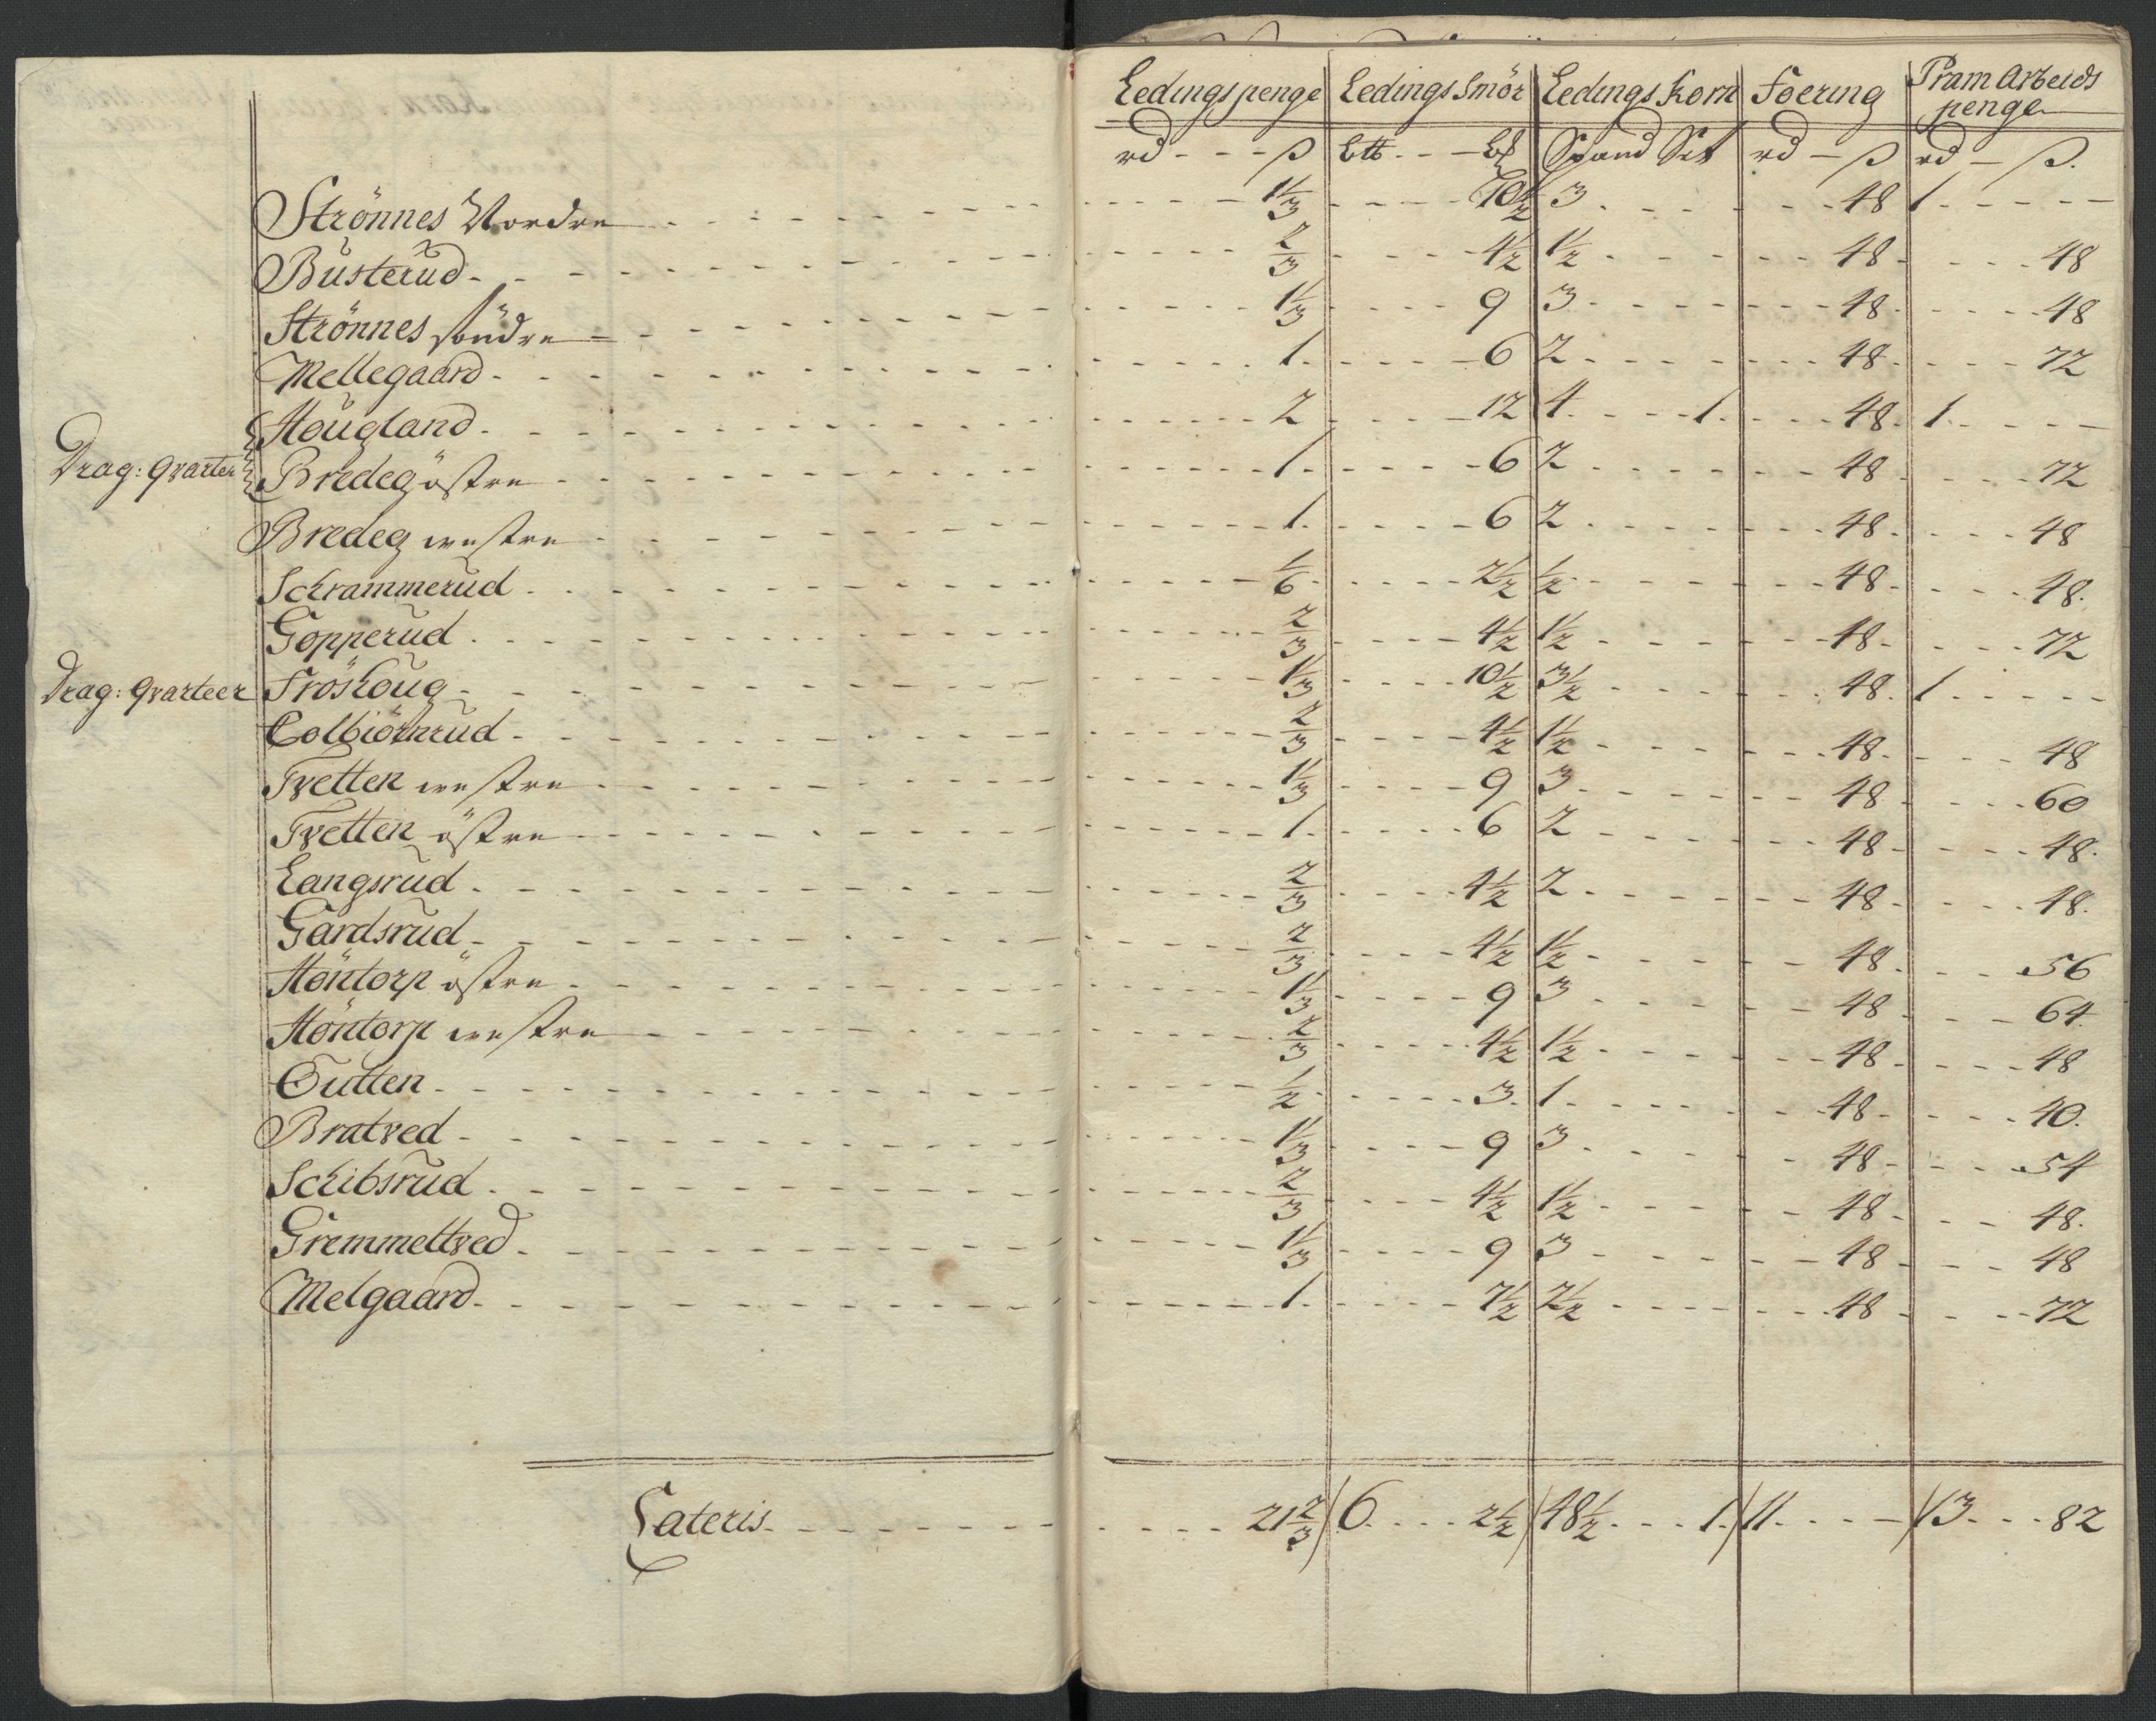 Ledings penge | Ledings Smör | Ledings Korn | Foering | Pram Arbeids penge
rd - - - ß | btt. - - b | Spand Set | rd - ß | rd - ß.
Strönnes Nordre - - - 1⅓ - - - 10½ | 3 - - - 48 | 1 - - -
Busterud - - - ⅔ - - - 4½ | 1½ - - - 48 - - - 48
Strönnes söndre - - - 1⅓ - - - 9 | 3 - - - 48 - - - 48
Mellegaard - - - 1 - - - 6 | 2 - - - 48 - - - 72
Hougland - - - 2 - - - 12 | 4 - - - 1 - - - 48 | 1 - - -
Drag: qvarteer Bredeg östre - - - 1 - - - 6 | 2 - - - 48 - - - 72
Bredeg westre - - - 1 - - - 6 | 2 - - - 48 - - - 48
Schrammerud - - - ⅙ - - - 2½ | ½ - - - 48 - - - 48.
Gopperud - - - ⅔ - - - 4½ | 1½ - - - 48 - - - 72
Drag: qvarteer Fröshoug - - - 1⅓ - - - 10½ | 3½ - - - 48 | 1 - - -
Colbiörnrud - - - ⅔ - - - 4½ | 1½ - - - 48 - - - 48
Tvetten westre - - - 1⅓ - - - 9 | 3 - - - 48 - - - 60
Tvetten östre - - - 1 - - - 6 | 2 - - - 48 - - - 48.
Langsrud - - - ⅔ - - - 4½ | 2 - - - 48 - - - 48.
Gardsrud - - - ⅔ - - - 4½ | 1½ - - - 48 - - - 56
Höntorp östre - - - 1⅓ - - - 9 | 3 - - - 48 - - - 64.
Höntorp westre - - - ⅔ - - - 4½ | 1½ - - - 48 - - - 48
Outten - - - ½ - - - 3 | 1 - - - 48 - - - 40.
Bratved - - - 1⅓ - - - 9 | 3 - - - 48 - - - 54
Schibsrud - - - ⅔ - - - 4½ | 1½ - - - 48 - - - 48.
Gremmettved - - - 1⅓ - - - 9 | 3 - - - 48 - - - 48
Melgaard - - - 1 - - - 7½ | 2½ - - - 48 - - - 72
Lateris - - - 21⅔ | 6 - - - 2½ | 48½ - - - 1 | 11 - - - | 13 - - - 82